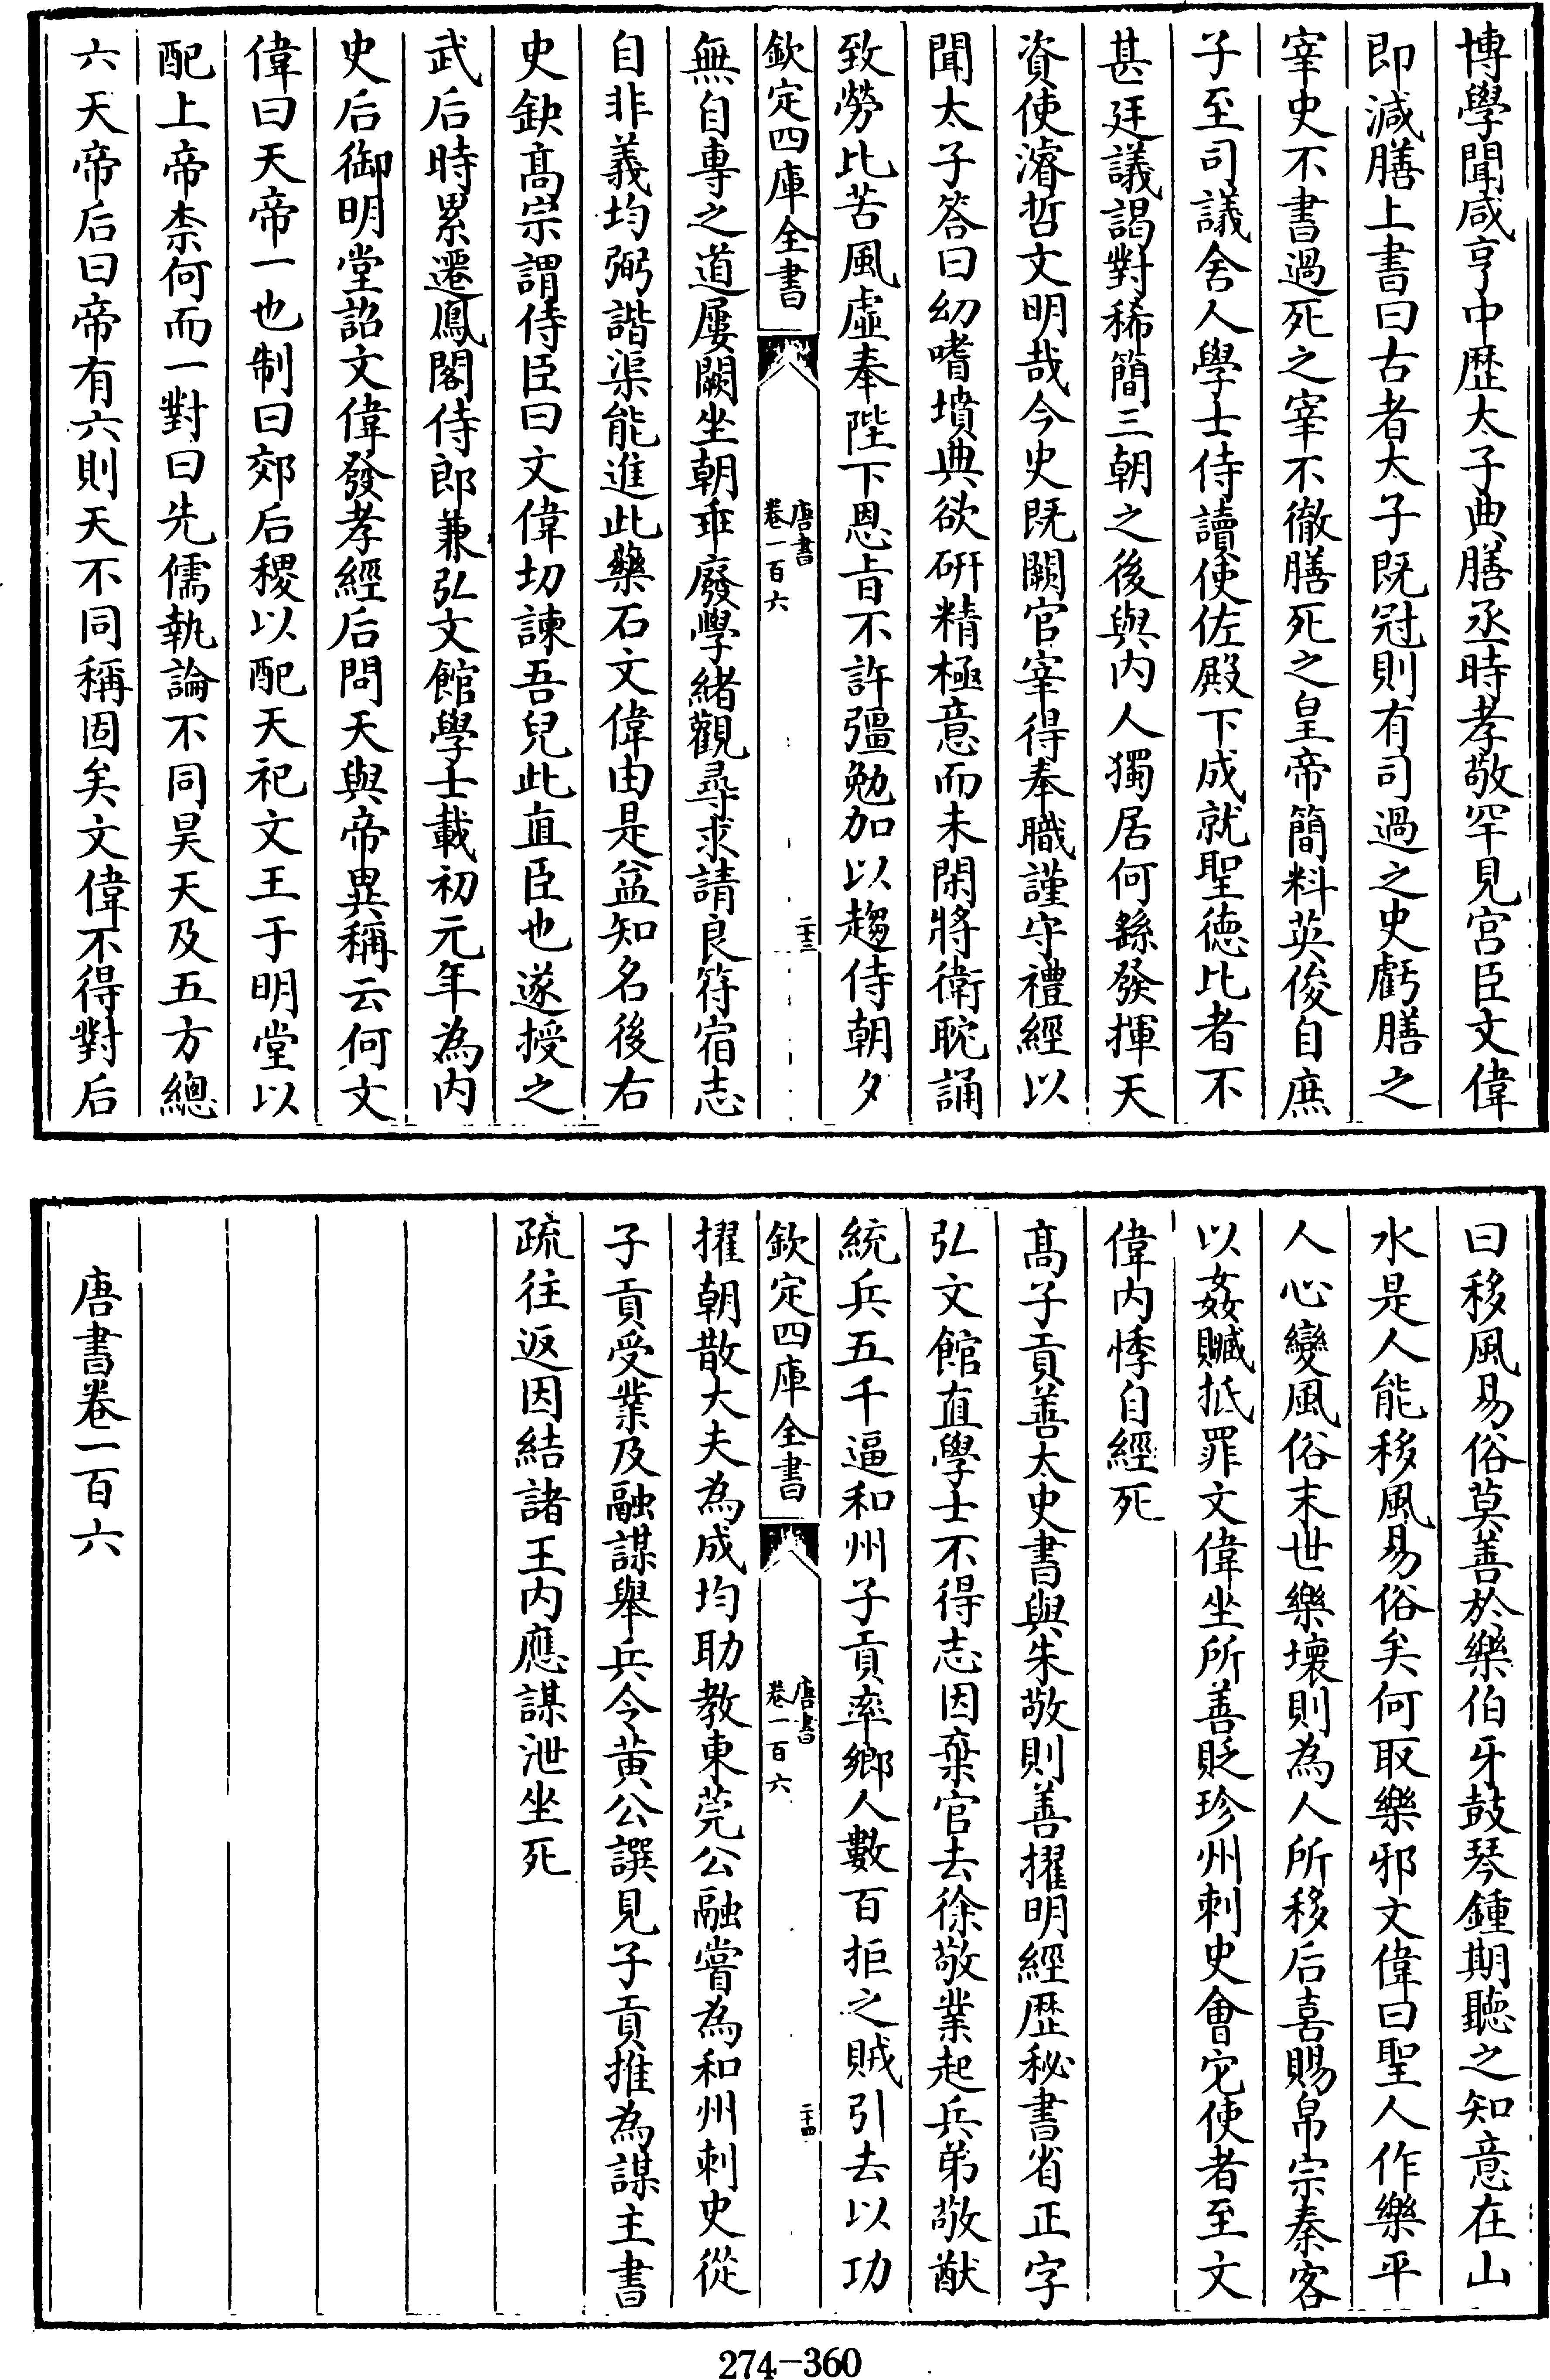 博學聞咸亨中歴太子典膳丞時孝敬罕見宫臣文偉
即減膳上書曰古者太子既冠則有司過之史虧膳之
宰史不書過死之宰不徹膳死之皇帝簡料英俊自庶
子至司議舍人學士侍讀使佐殿下成就聖徳比者不
甚廷議謁對稀簡三朝之後與内人獨居何繇發揮天
資使濬哲文明哉今史既闕官宰得奉職謹守禮經以
聞太子答曰幼嗜墳典欲研精極意而未閑將衛耽誦
致勞比苦風虛奉陛下恩旨不許彊勉加以趨侍朝夕
欽定四庫全書
唐書
卷一百六
二十三
無自專之道屢闕坐朝乖廢學緒觀尋求請良符宿志
自非義均弼諧渠能進此藥石文偉由是益知名後右
史缺髙宗謂侍臣曰文偉切諫吾兒此直臣也遂授之
武后時累遷鳳閣侍郎兼弘文館學士載初元年為内
史后御明堂詔文偉發孝經后問天與帝異稱云何文
偉曰天帝一也制曰郊后稷以配天祀文王于明堂以
配上帝柰何而一對曰先儒執論不同昊天及五方總
六天帝后曰帝有六則天不同稱固矣文偉不得對后
曰移風易俗莫善於樂伯牙鼓琴鍾期聽之知意在山
水是人能移風易俗矣何取樂邪文偉曰聖人作樂平
人心變風俗末世樂壞則為人所移后喜賜帛宗秦客
以姦贓抵罪文偉坐所善貶珍州刺史會它使者至文
偉内悸自經死
髙子貢善太史書與朱敬則善擢明經歴秘書省正字
弘文館直學士不得志因棄官去徐敬業起兵弟敬猷
統兵五千逼和州子貢率鄉人數百拒之賊引去以功
欽定四庫全書
唐書
卷一百六
二十四
擢朝散大夫為成均助教東莞公融嘗為和州刺史從
子貢受業及融謀舉兵令黄公譔見子貢推為謀主書
疏往返因結諸王内應謀泄坐死
唐書卷一百六
274-360